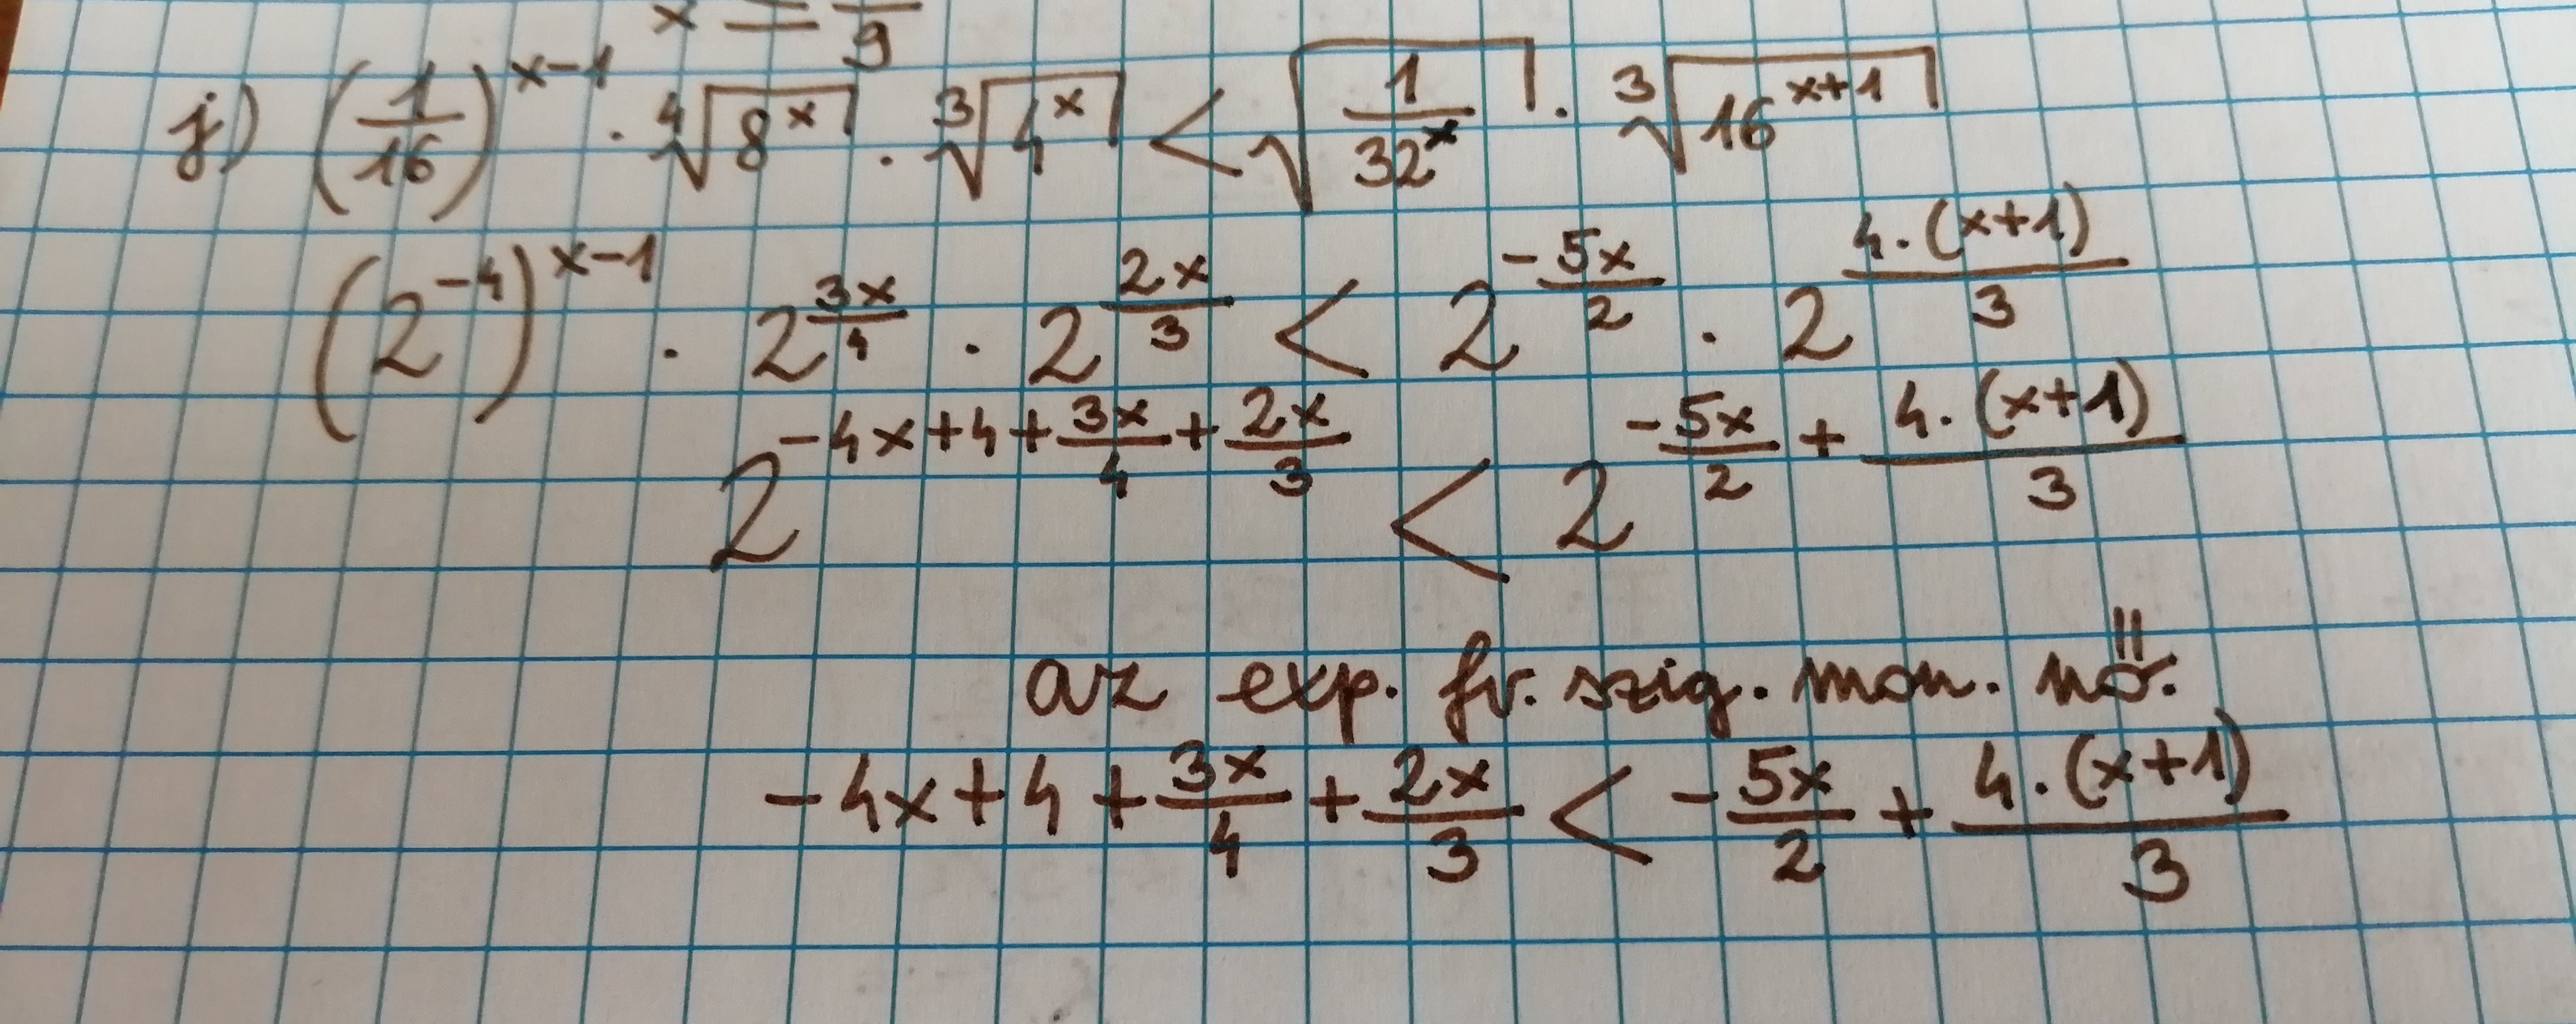 x = —/9
j) (1/16)^(x-1) · ⁴√(8^x) · ³√(4^x) < √(1/32^x) · ³√(16^(x+1))
(2^(-4))^(x-1) · 2^(3x/4) · 2^(2x/3) < 2^(-5x/2) · 2^(4·(x+1)/3)
2^(-4x+4+3x/4+2x/3) < 2^(-5x/2+4·(x+1)/3)
az exp. fv. szig. mon. nő.
-4x+4+3x/4+2x/3 < -5x/2+4·(x+1)/3